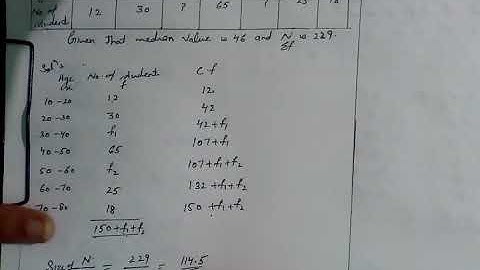 No. of 12 30 ? 65 ? 25 18
student
Given That median value is 46 and N/Σf is 229.
Age No. of student C f
f
10-20 12 12
20-30 30 42
30-40 f1 42+f1
40-50 65 107+f1
50-60 f2 107+f1+f2
60-70 25 132+f1+f2
70-80 18 150+f1+f2
150+f1+f2
N = 229 = 114.5